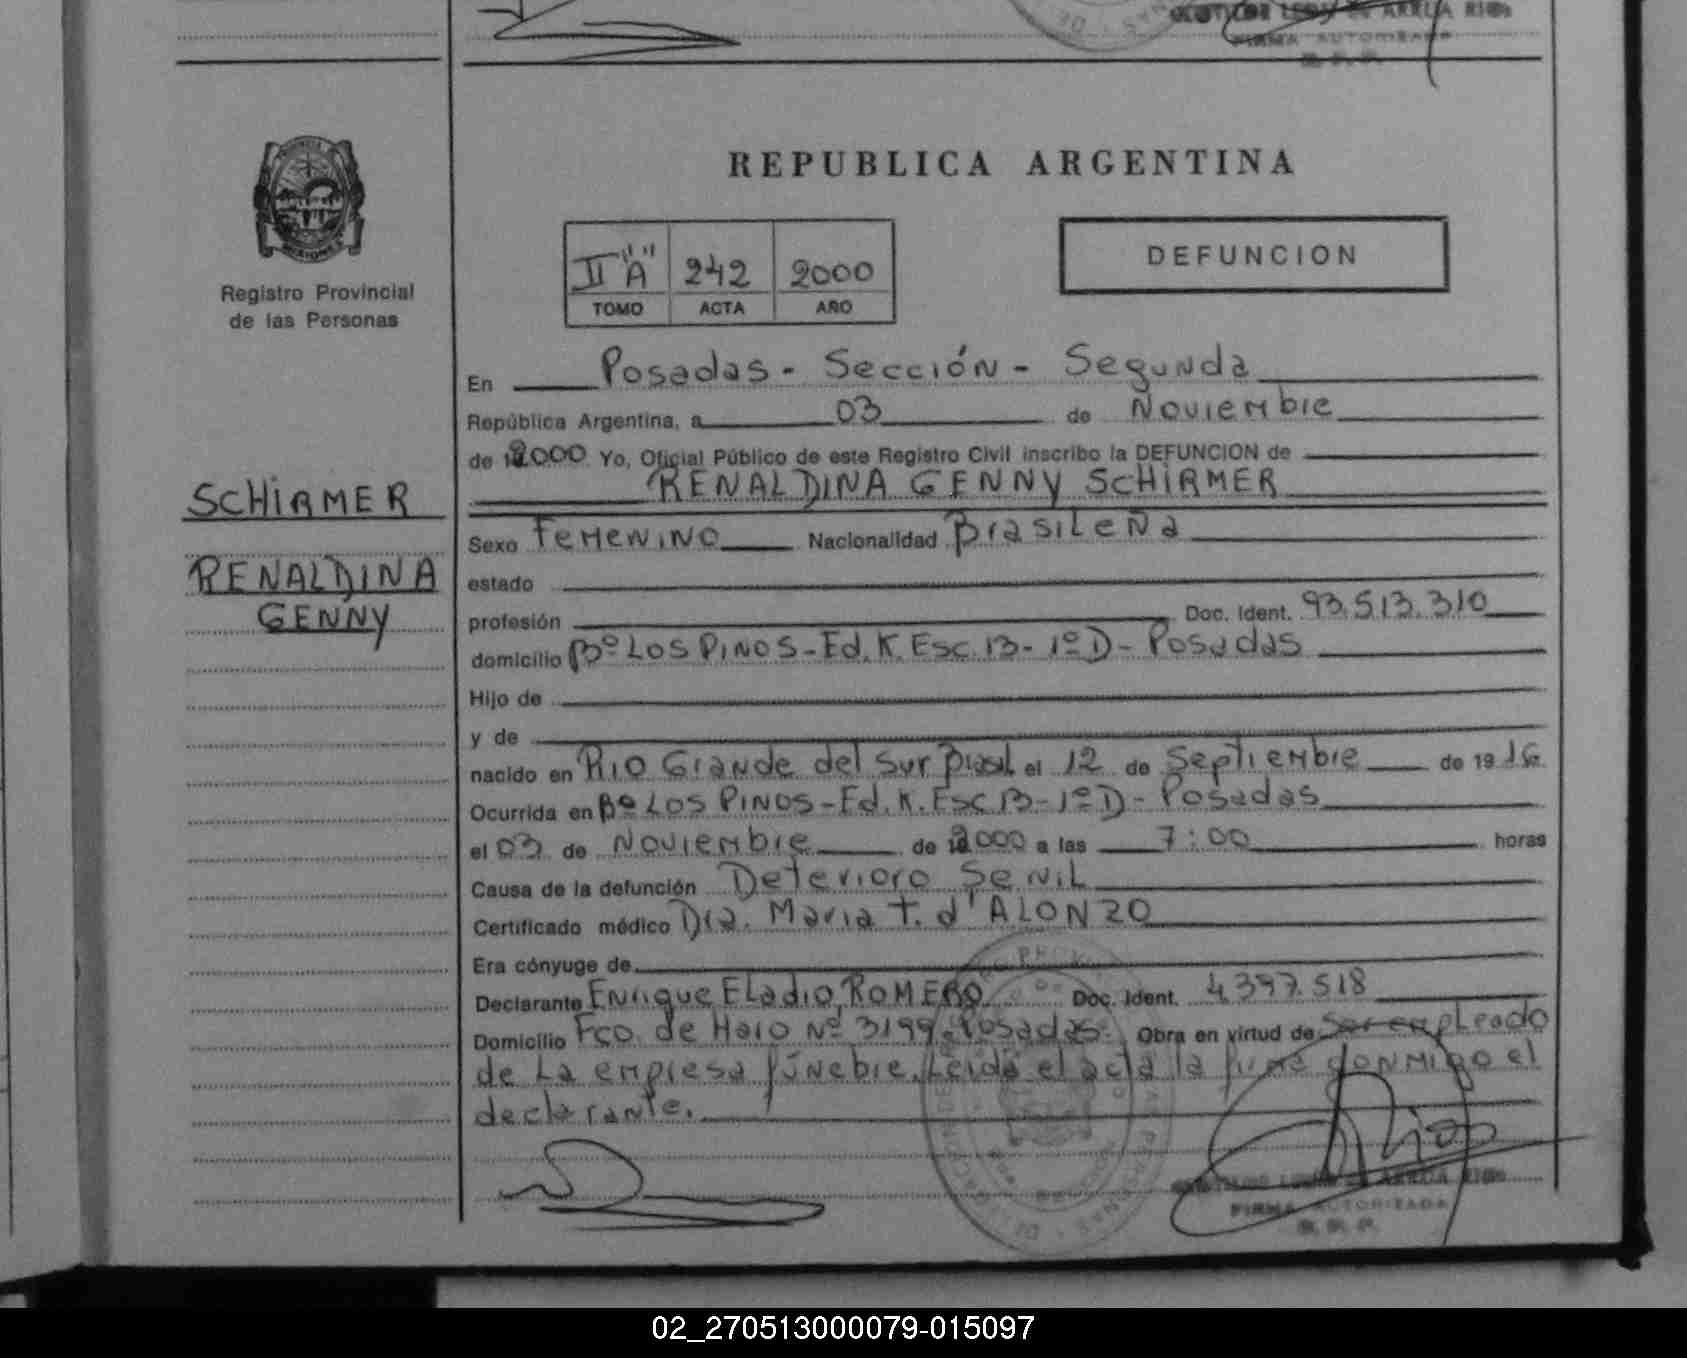 FIRMA AUTORIZADA
R. P. P.
REPUBLICA ARGENTINA
PROVINCIA
MISIONES
Registro Provincial
de las Personas
II "A" 242 2000
TOMO ACTA AÑO
DEFUNCION
En Posadas - Sección - Segunda
República Argentina, a 03 de Noviembre
de 2000 Yo, Oficial Público de este Registro Civil inscribo la DEFUNCION de
RENALDINA GENNY SCHIRMER
SCHIRMER
RENALDINA
GENNY
Sexo Femenino Nacionalidad Brasileña
estado
profesión Doc. Ident. 93.513.310
domicilio Bº Los Pinos - Ed. K. Esc. 13 - 1º D - Posadas
Hijo de
y de
nacido en Rio Grande del Sur Brasil el 12 de Septiembre de 19 16
Ocurrida en Bº Los Pinos - Ed. K. Esc. 13 - 1º D - Posadas
el 03 de Noviembre de 2000 a las 7:00 horas
Causa de la defunción Deterioro Senil
Certificado médico Dra. Maria T. d'ALONZO
Era cónyuge de
Declarante Enrique Eladio ROMERO Doc. Ident. 4.397.518
Domicilio Fco. de Haro Nº 3199 - Posadas. Obra en virtud de ser empleado
de La empresa fúnebre. Leida el acta la firma conmigo el
declarante.
FIRMA AUTORIZADA
R. P. P.
02_270513000079-015097